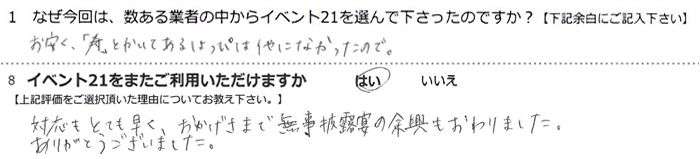 1 なぜ今回は、数ある業者の中からイベント21を選んで下さったのですか?【下記余白にご記入下さい】
お安く、「寿」とかいてあるはっぴは他になかったので。
8 イベント21をまたご利用いただけますか はい いいえ
【上記評価をご選択頂いた理由についてお教え下さい。】
対応もとても早く、おかげさまで無事披露宴の余興もおわりました。
ありがとうございました。